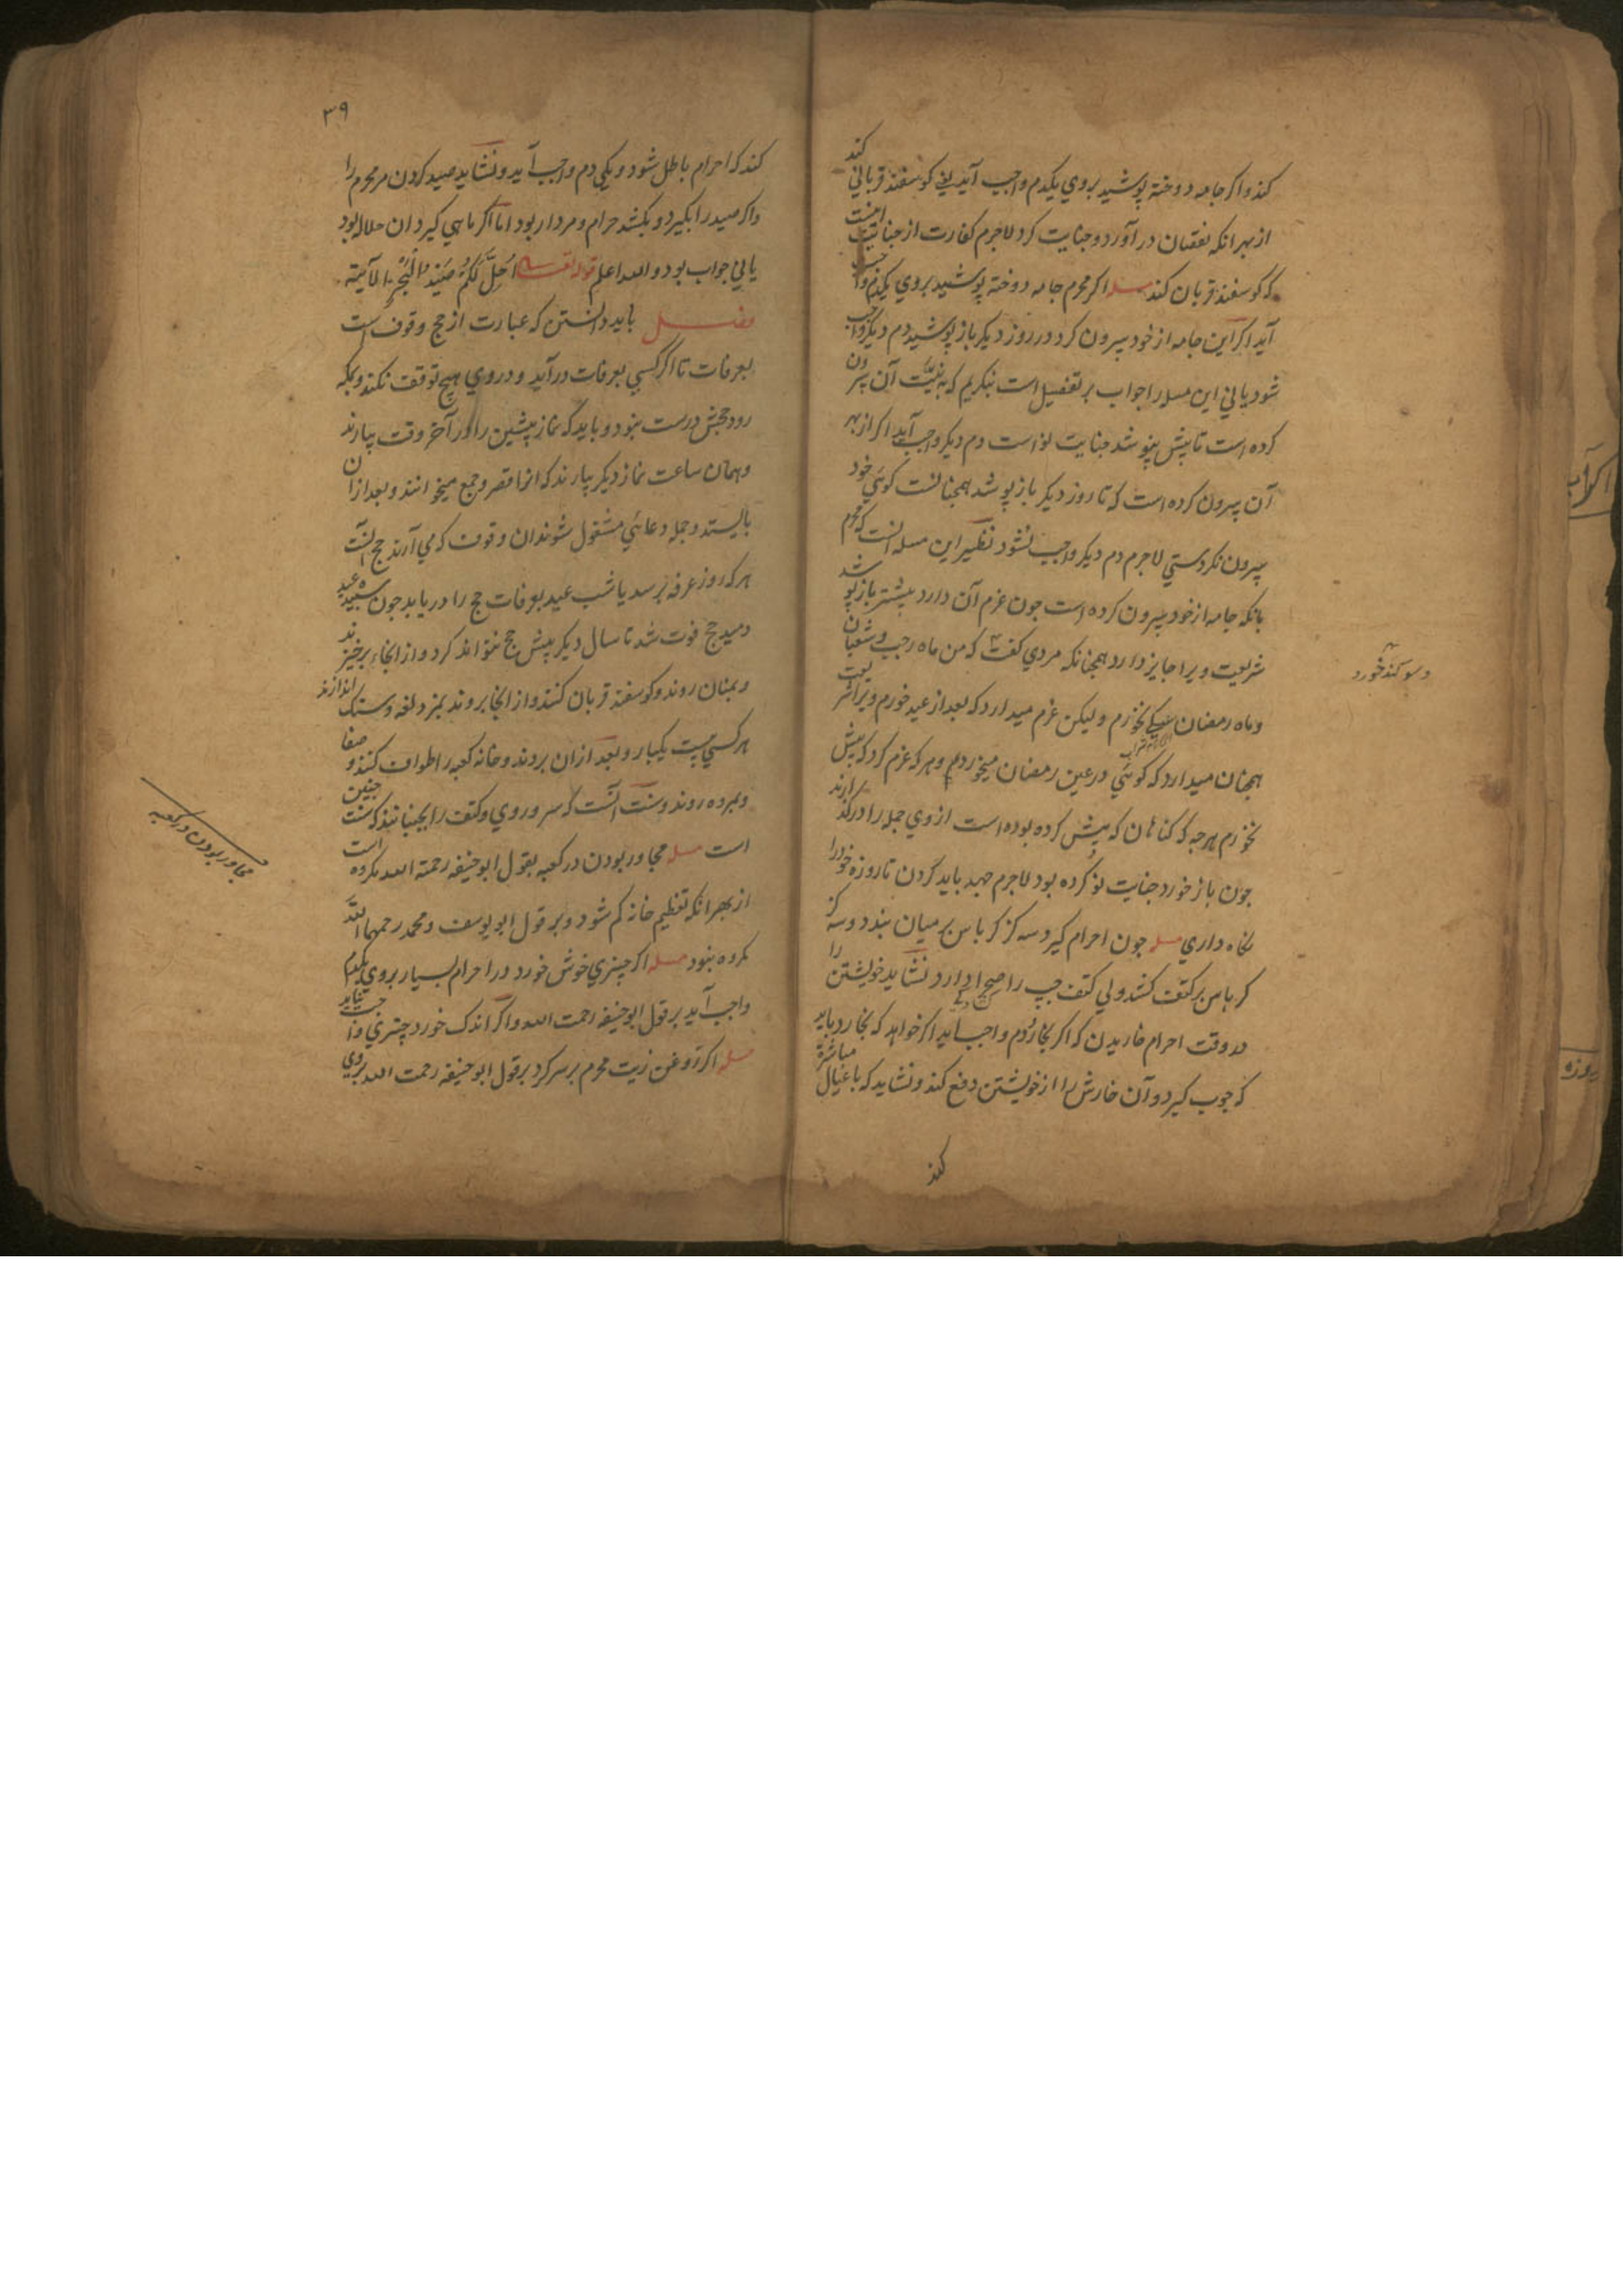 کند واکر جامه دوخته پوشید بروي یکدم واجب آید یعنی کوسفند قرباني کند
از بهر انکه نقصان در آورد وجنایت کرد لاجرم کفارت از جنایت اینست
که کوسفند قربان کند مسله اکر محرم جامه دوخته پوشید بروي یکدم واجب
آید اکر این جامه از خود بیرون کرد در روز دیکر باز پوشید دم دیکر واجب
شود یا ني این مسله را جواب بر تفصیل است بنکریم که به نیّت آن بیرون
کرده است تا بیش نپوشد جنایت نو است دم دیکر واجب آید اکر از بهر
آن بیرون کرده است که تا روز دیکر باز پوشد همچنانست کوئي خود
بیرون نکردستي لاجرم دم دیکر واجب نشود نظیر این مسله آنست که محرم
بانکه جامه از خود بیرون کرده است چون عزم آن دارد بیشتر باز پوشد
شریعت ویرا جایز دارد همچنانکه مردي کفت که من ماه رجب وشعبان
وسوکند خورد
وماه رمضان نخورم ولیکن عزم میدارد که بعد از عید خورم ویرا شریعت
همچنان میدارد که کوئي در عین رمضان میخوردم وهر که عزم کرد که بیش
نخورم هرچه که کناهان که پیش کرده بوده است از وي جمله را درکذارند
چون باز خورد جنایت نو کرده بود لاجرم جهد باید کردن تا روزه خود را
نکاه داري مسله چون احرام کیرد سه کز کرباس بر میان بندد وسه کز
کرباس بر کتف کشد ولي کتف چپ را دارد نشاید خویشتن را
در وقت احرام خاریدن که اکر بخارد دم واجب آید اکر خواهد که بخارد باید
که چوب کیرد وآن خارش را از خویشتن دفع کند ونشاید که با عیال مباشرة
کند
۳۹
کند که احرام باطل شود ویکي دم واجب آید ونشاید صید کردن مر محرم را
واکر صید را بکیرد وبکشد حرام ومردار بود اما اکر ماهي کیرد ان حلال بود
یا ني جواب بود والله اعلم قوله تعالی اُحِلَّ لَکُمْ صَیْدُ الْبَحْرِ الآیة
فصل باید دانستن که عبارت از حج وقوف است
بعرفات تا اکر کسي بعرفات در آید ودر وي هیچ توقف نکند وبمکه
رود حجش درست نبود وباید که نماز پیشین را در آخر وقت بیارند
وهمان ساعت نماز دیکر بیارند که انرا قصر وجمع میخوانند وبعد از آن
بایستند وجمله دعائي مشغول شوند ان وقوف که مي آرند حج آنست
هر که روز عرفه برسد یا شب عید بعرفات حج را دریابد چون سپیده عید
دمید حج فوت شد تا سال دیکر پیش حج نتواند کرد واز انجا برخیزند
وبمنان روند وکوسفند قربان کنند واز انجا بروند بمزدلفه وسنک اندازند
هر کسي بیست یکبار وبعد ازان بروند وخانه کعبه را طواف کنند وصفا
وبمروه روند وسنت آنست که سر وروي وکتف را بجنبانند که سنت چنین
است مسله مجاور بودن در کعبه بقول ابو حنیفه رحمة الله مکروه است
مجاور بودن در کعبه
از بهر انکه تعظیم خانه کم شود وبر قول ابو یوسف ومحمد رحمهما اللّٰه
مکروه نبود مسله اکر چیزي خوش خورد در احرام بسیار بروي یکدم
واجب آید بر قول ابو حنیفه رحمت الله واکر اندک خورد چیزي واجب نیاید
مسله اکر روغن زیت محرم بر سر کرد بر قول ابو حنیفه رحمت الله بروي